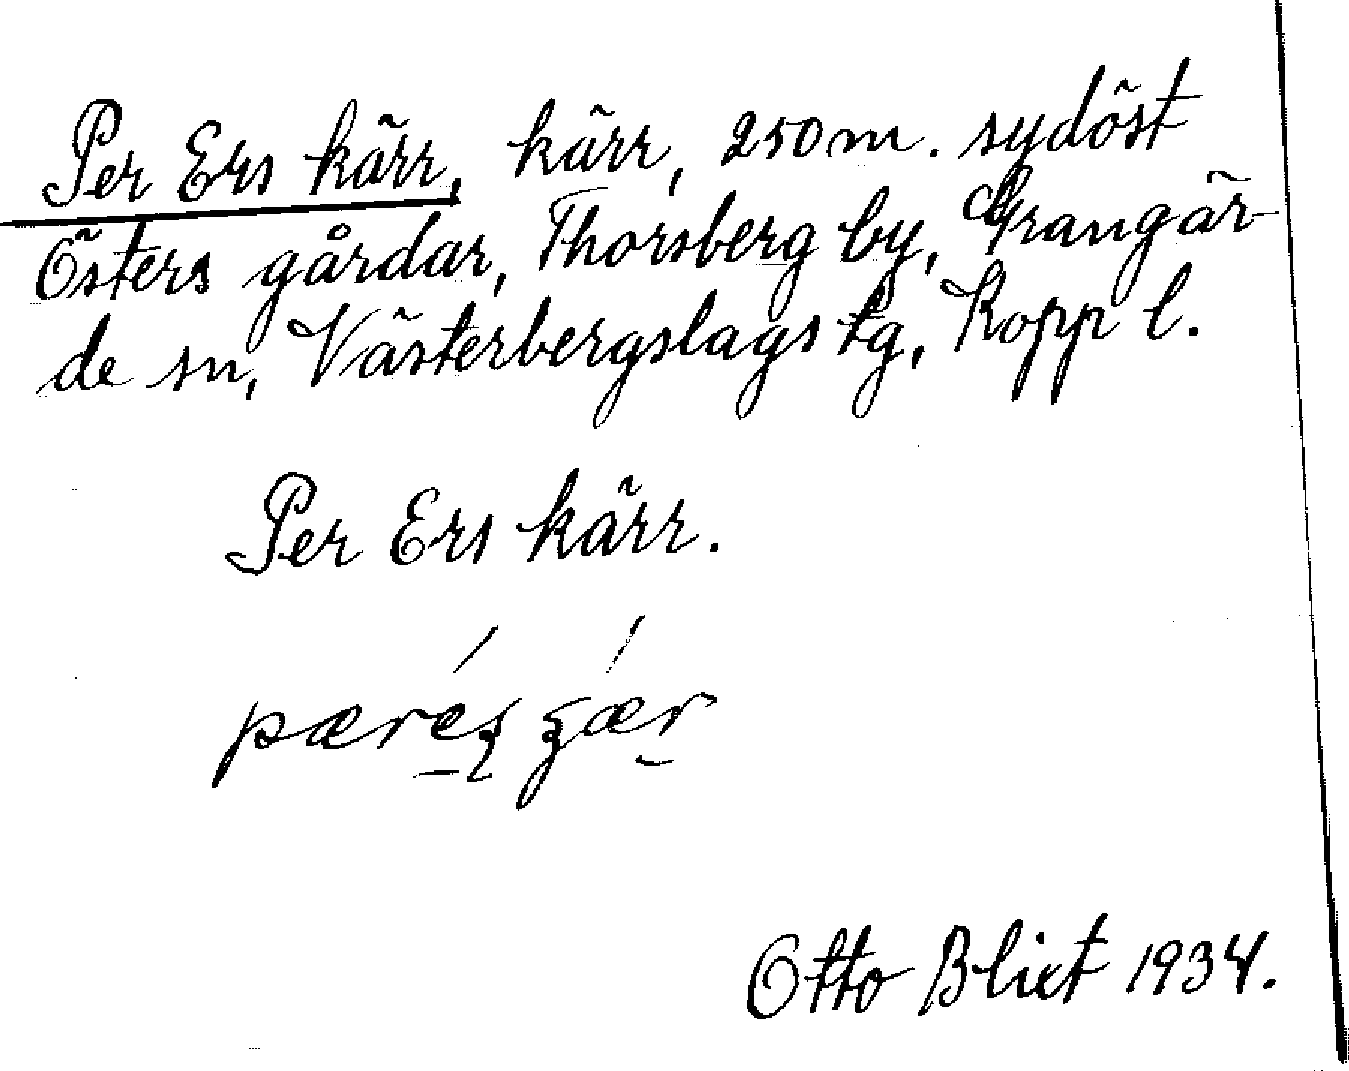 Per Ers kärr, kärr, 250 m. sydöst
Östers gårdar, Thorsberg by, Grangär-
de sn, Västerbergslags tg, Kopp l.
Per Ers kärr.
Otto Blixt 1934.